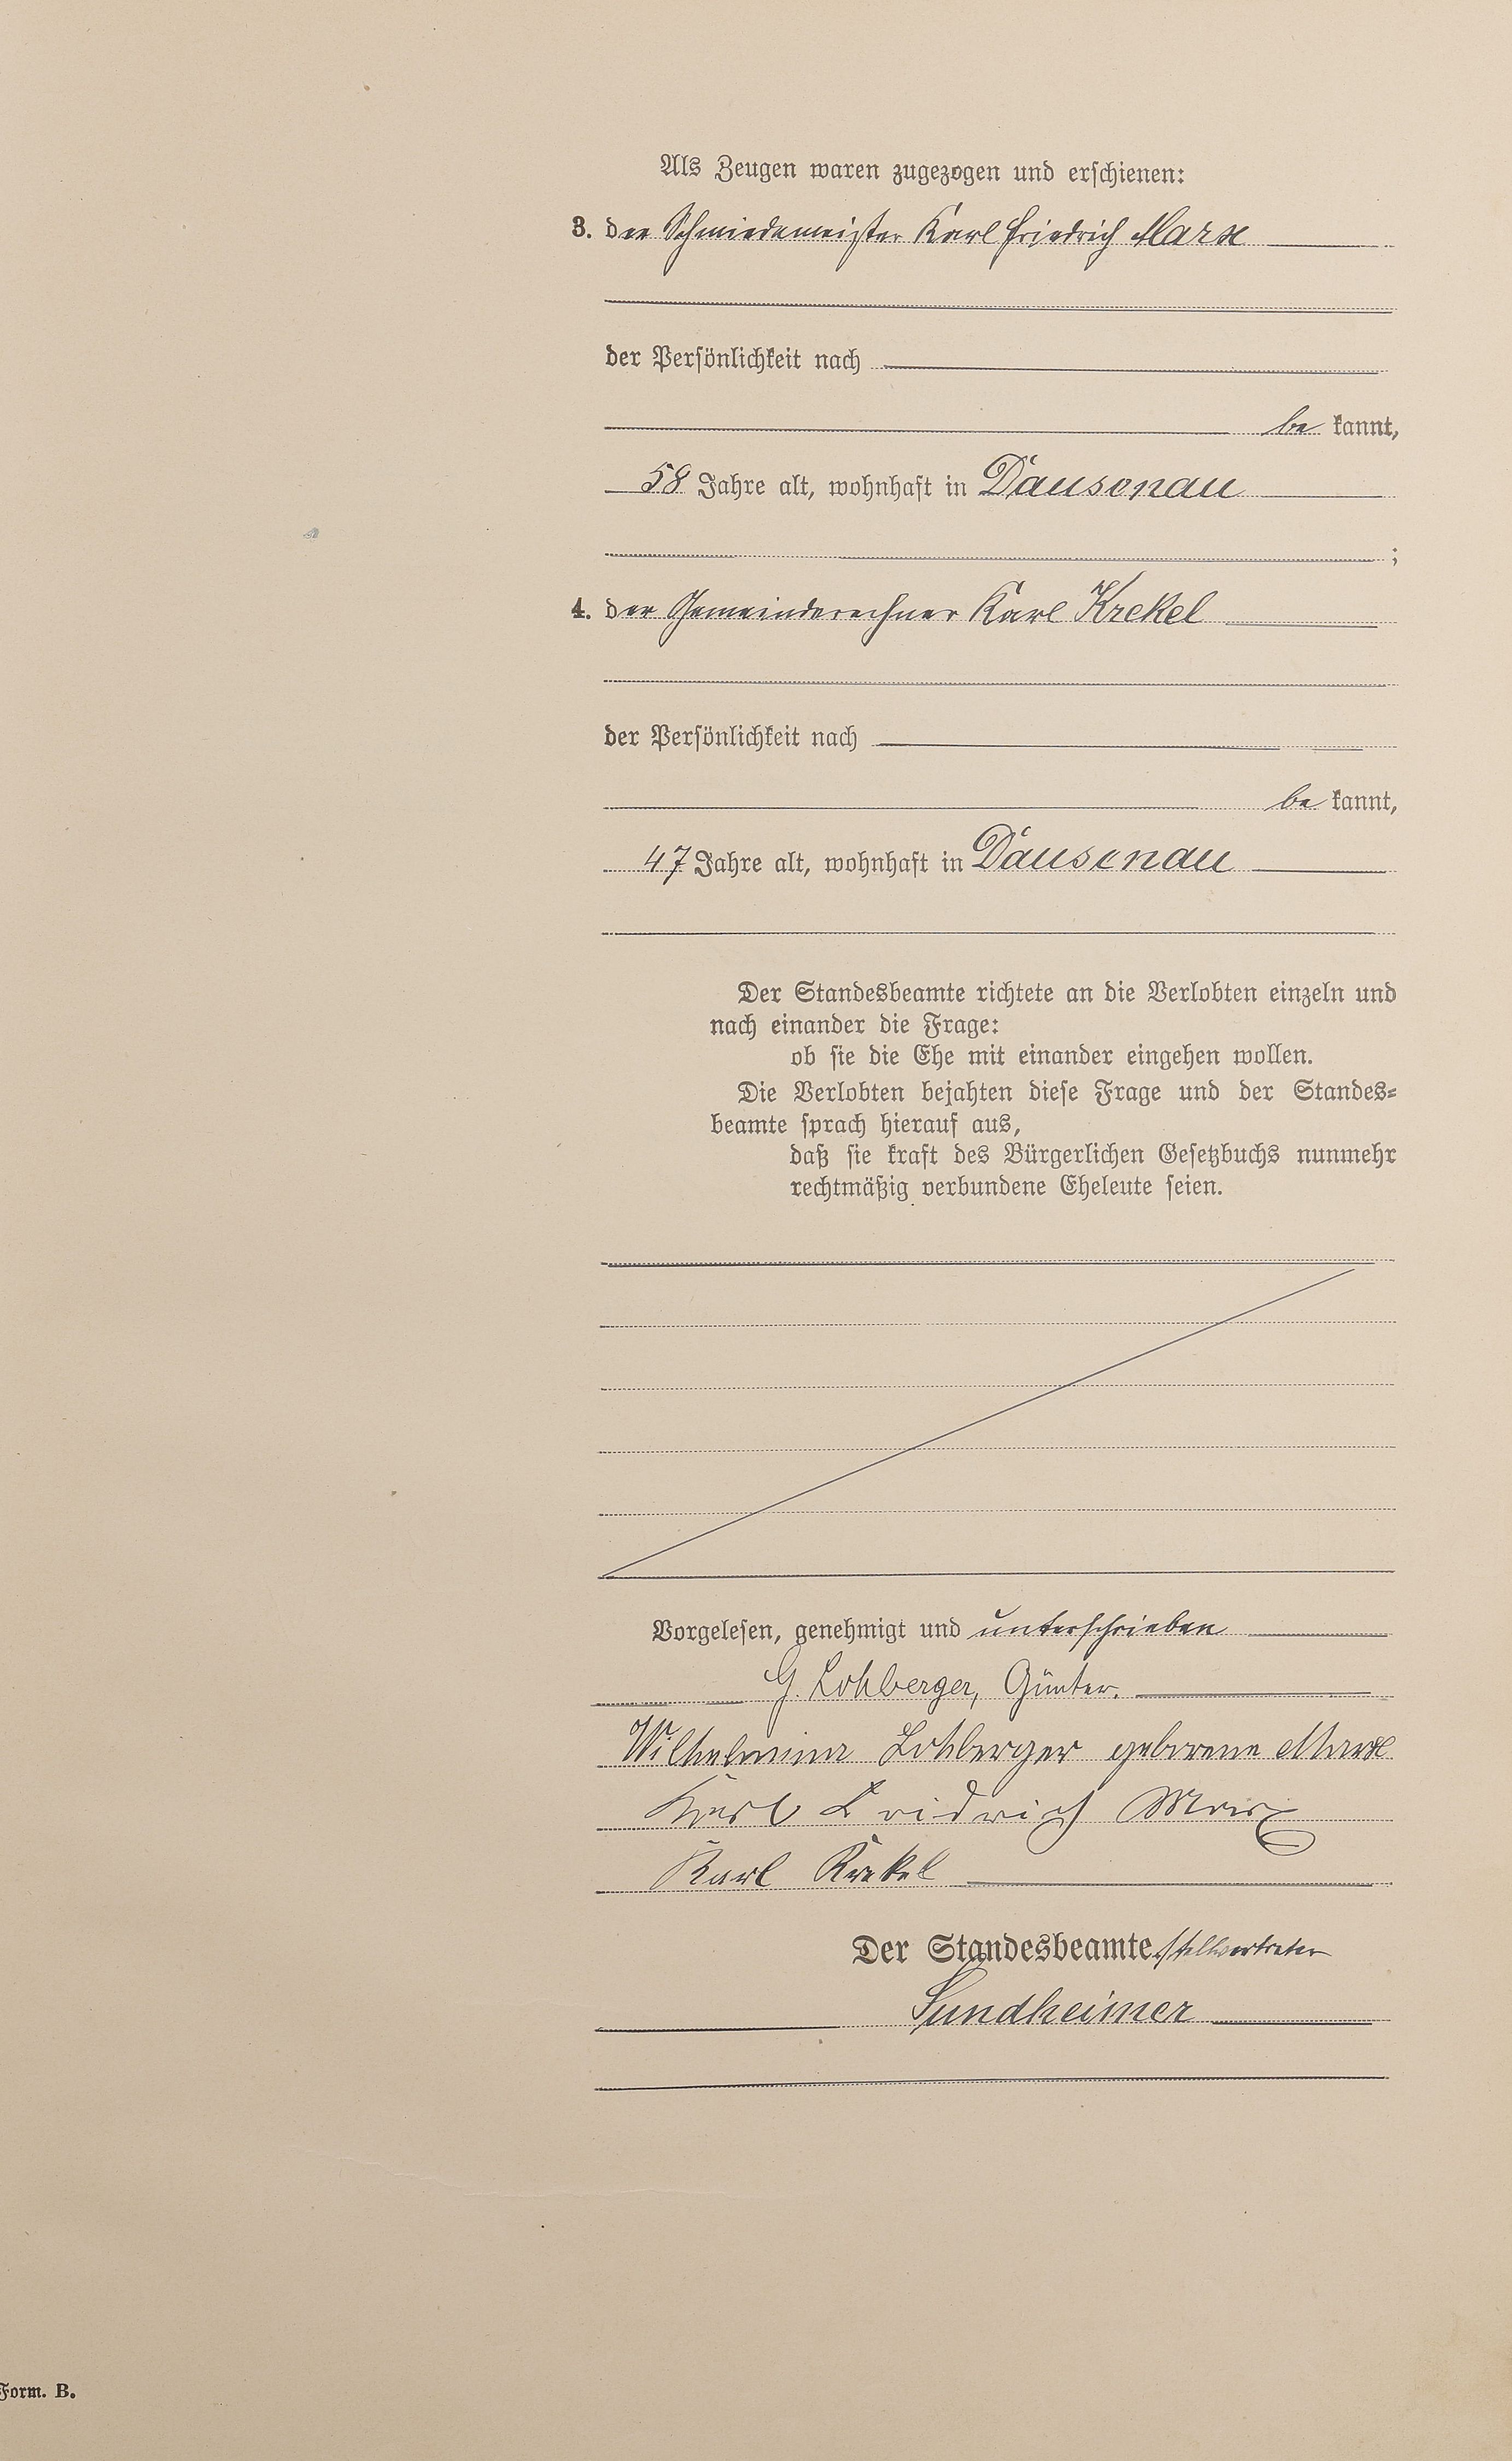 Als Zeugen waren zugezogen und erschienen:
3. der Schmiedemeister Karl Friedrich Marx
der Persönlichkeit nach
be kannt,
58 Jahre alt, wohnhaft in Dausenau
;
4. der Gemeinderechner Karl Krekel
der Persönlichkeit nach
be kannt,
47 Jahre alt, wohnhaft in Dausenau
Der Standesbeamte richtete an die Verlobten einzeln und
nach einander die Frage:
ob sie die Ehe mit einander eingehen wollen.
Die Verlobten bejahten diese Frage und der Standes-
beamte sprach hierauf aus,
daß sie kraft des Bürgerlichen Gesetzbuchs nunmehr
rechtmäßig verbundene Eheleute seien.
Vorgelesen, genehmigt und unterschrieben
G. Lohberger, Günter.
Wilhelmine Lohberger geborene Marx
Karl Fridrich Marx
Karl Krekel
Der Standesbeamte stellvertreter
Sundheimer
Form. B.